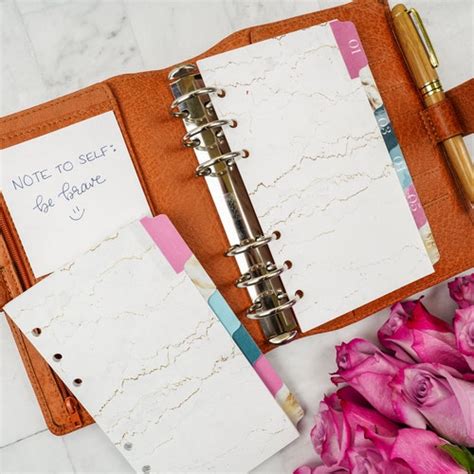 NOTE TO SELF:
be brave
01
03
05